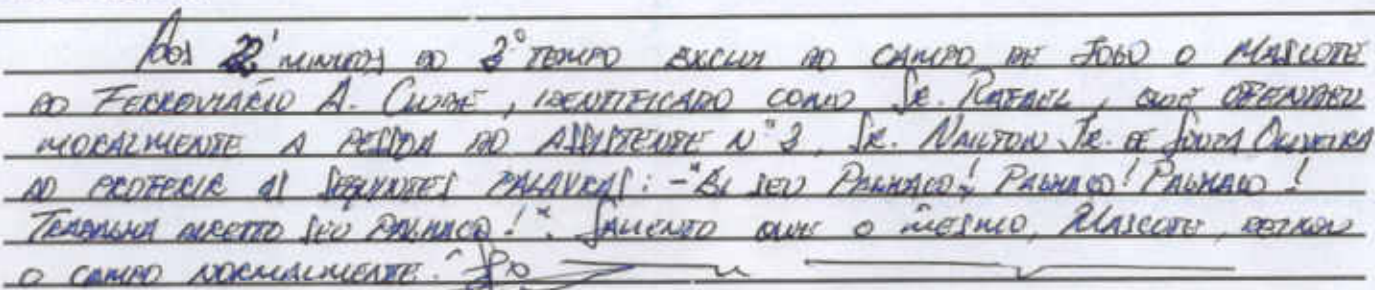 Aos 22' minutos do 2º tempo exclui do campo de jogo o mascote
do Ferroviário A. Clube, identificado como Sr. Rafael, que ofendeu
moralmente a pessoa do assistente Nº 2, Sr. Nailton Jr. de Souza Oliveira
ao proferir as seguintes palavras: -"Ei seu Palhaço! Palhaço! Palhaço!
Trabalha direito seu palhaço!". Saliento que o mesmo, mascote, deixou
o campo normalmente.